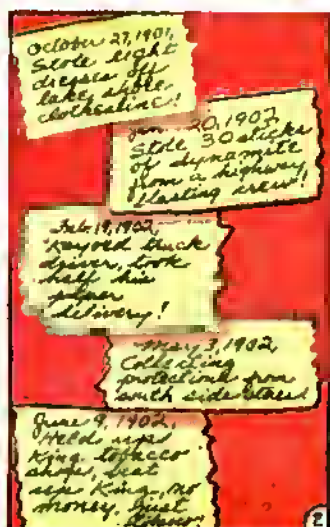 October 27, 1901,
Stole eight
dresses off
lake shore
clothesline!
20, 1902,
Stole 30 sticks
of dynamite
from a highway
blasting crew!
Feb. 19, 1902,
Kayoed truck
driver, took
half his
delivery!
May 3, 1902,
Collecting
protection from
south side stores
June 9, 1902,
Held up
King tobacco
shops, beat
up King, no
money, just
2